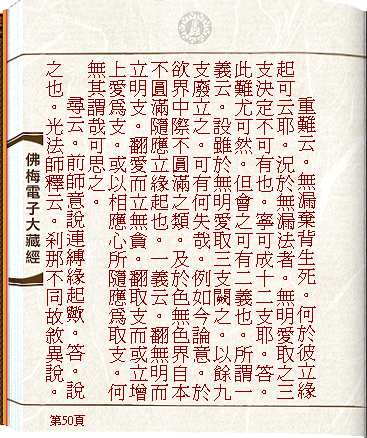 重難云。無漏棄背生死。何於彼立緣
起可云耶。況於無漏法者。無明愛取之三
支決定不可有也。寧可成十二支耶。答。
此難尤可然。但會之可有二義也。所謂一
義云。設雖於無明愛取三支闕之。以餘九
支廢立之。可有何失哉。例如今論意。於
欲界中際不圓滿之類。及於色無色界自本
不圓滿隨應立緣起也。一義云。翻無明而
立明支。翻愛而立無貪。翻取支而或立增
上愛爲支。或以相應心所隨應爲取支。何
無其謂哉可思之。
尋云。前師意說連縛緣起歟。答。說
之也。光法師釋云。刹那不同故敘異說。
佛梅電子大藏經
第50頁